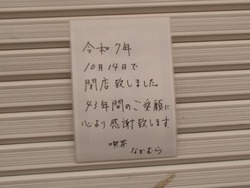 令和7年
10月14日で
閉店致しました
43年間のご愛顧に
心より感謝致します
喫茶
なかむら